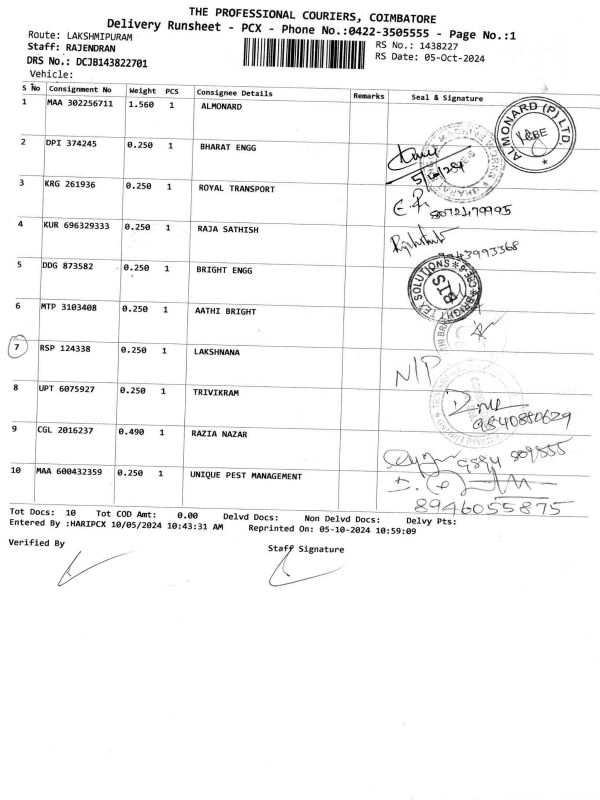 THE PROFESSIONAL COURIERS, COIMBATORE
Delivery Runsheet - PCX - Phone No.:0422-3505555 - Page No.:1
Route: LAKSHMIPURAM RS No.: 1438227
Staff: RAJENDRAN RS Date: 05-Oct-2024
DRS No.: DCJB143822701
Vehicle:
S No Consignment No Weight PCS Consignee Details Remarks Seal & Signature
1 MAA 302256711 1.560 1 ALMONARD ALMONARD (P) LTD
2 DPI 374245 0.250 1 BHARAT ENGG
3 KRG 261936 0.250 1 ROYAL TRANSPORT
4 KUR 696329333 0.250 1 RAJA SATHISH
5 DDG 873582 0.250 1 BRIGHT ENGG
6 MTP 3103408 0.250 1 AATHI BRIGHT
7 RSP 124338 0.250 1 LAKSHNANA N/P
8 UPT 6075927 0.250 1 TRIVIKRAM 9840880629
9 CGL 2016237 0.490 1 RAZIA NAZAR
10 MAA 600432359 0.250 1 UNIQUE PEST MANAGEMENT
8946055875
Tot Docs: 10 Tot COD Amt: 0.00 Delvd Docs: Non Delvd Docs: Delvy Pts:
Entered By :HARIPCX 10/05/2024 10:43:31 AM Reprinted On: 05-10-2024 10:59:09
Verified By Staff Signature